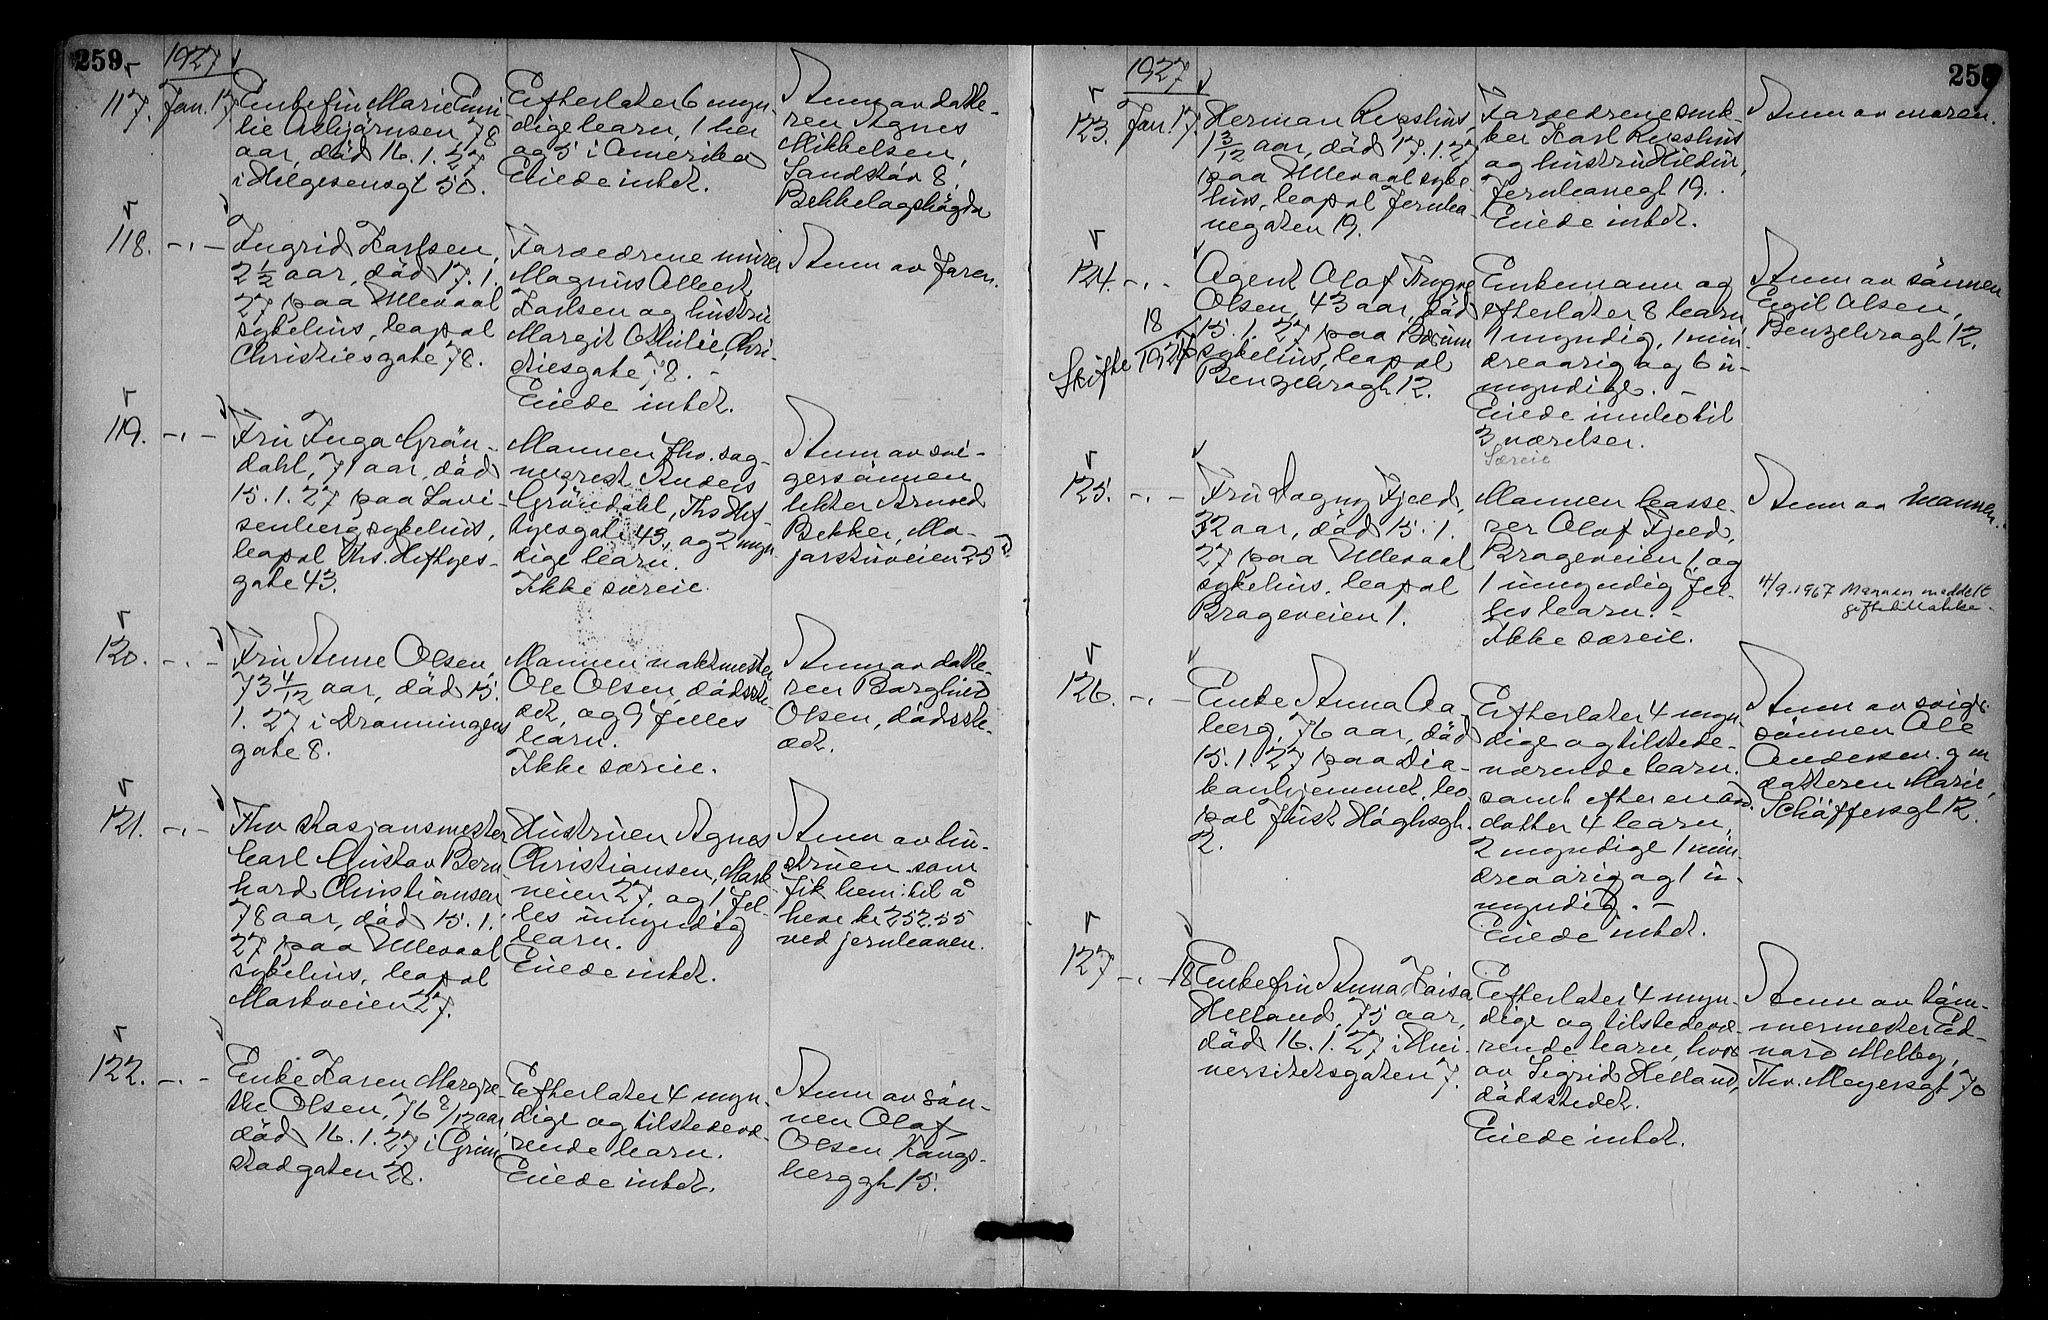 259
1927
117. Jan. 17
Enkefru Marie Emi-
lie Asbjørnsen, 78
aar, död 16.1.27
i Helgesensgt 50.
Efterlater 6 myn-
dige barn, 1 her
og 5 i Amerika
Eiede intet.
Anm av datte-
ren Agnes
Mikkelsen,
Sandstöv 8,
Bekkelagshögda
118. -"-
Ingrid Karlsen,
2 1/2 aar, död 17.1.
27 paa Ullevaal
sykehus, bopæl
Christiesgate 78.
Forældrene murer
Magnus Albert
Karlsen og hustru
Margit Othilie, Chri-
stiesgate 78. -
Eiede intet.
Anm av faren.
119. -"-
Fru Inga Grön-
dahl, 71 aar, död
15.1.27 paa Lovi-
senberg sykehus,
bopæl Ths. Heftyes-
gate 43.
Mannen fhv. sag-
mester Anders
Gröndahl, Ths Hef-
tyesgate 43, og 2 myn
dige barn.
Ikke særeie.
Anm av svi-
gersönnen
lektor Arnold
Bekker, Ma-
jorstuveien 25
120. -"-
Fru Anne Olsen,
73 4/12 aar, död 15.
1.27 i Dronningens
gate 8.
Mannen vaktmester
Ole Olsen, dödsste-
det, og 9 felles
barn.
Ikke særeie.
Anm av datte-
ren Borghild
Olsen, dödsste-
det.
121. -"-
Fhv stasjonsmester
Carl Gustav Bern
hard Christiansen
78 aar, död 15.1.
27 paa Ullevaal
sykehus, bopæl
Markveien 27.
Hustruen Agnes
Christiansen, Mark
veien 27, og 1 fel-
les umyndig
barn.
Eiede intet.
Anm av hu-
struen som
fik bem. til å
heve kr 252.55
ved jernbanen.
122. -"-
Enke Karen Margre
the Olsen, 76 2/12 aar,
död 16.1.27 i Grim
stadgaten 28.
Efterlater 4 myn-
dige og tilstedevæ-
rende barn.
Eiede intet.
Anm av sön-
nen Olaf
Olsen Kongs-
berggt 15.
259
1927
123. Jan. 17.
Herman
1 3/12 aar, död 17.1.27
paa Ullevaal syke-
hus, bopæl Jernba-
negaten 19.
Forældrene snek-
ker Karl
og hustru Hildur,
Jernbanegt 19.
Eiede intet.
Anm av moren.
124. -"-
18
1927
Skifte
Agent Olaf Trygve
Olsen, 43 aar, död
15.1.27 paa Bærum
sykehus, bopæl
Benzebragt 12.
Enkemann og
efterlater 8 barn
1 myndig, 1 min-
dreaarig og 6 u-
myndige. -
Eiede innbo til
3 værelser.
Særeie
Anm av sönnen
Egil Olsen,
Benzebragt 12.
125. -"-
Fru Dagny Fjeld,
32 aar, död 15.1.
27 paa Ullevaal
sykehus, bopæl
Brageveien 1.
Mannen kasse-
rer Olaf Fjeld,
Brageveien 1, og
1 umyndig fel-
les barn. -
Ikke særeie.
Anm av mannen.
4/9.1967 Mannen meddelt
gifteattest.
126. -"-
Enke Anna Aa
berg, 76 aar, död
15.1.27 paa Dia-
konhjemmet, bo
pæl Just Höghsgt.
2.
Efterlater 4 myn-
dige og tilstede-
værende barn.
samt efter en död
datter 4 barn,
2 myndige 1 min-
dreaarig og 1 u-
myndig. -
Eiede intet.
Anm av sviger
sönnen Ole
Andersen. g m
datteren Marie,
Schäffersgt 12.
127 -"- 18
Enkefru Anna Kaisa
Helland, 75 aar,
död 16.1.27 i Uni-
versitetsgaten 7.
Efterlater 4 myn-
dige og tilstedevæ-
rende barn, hvor
av Sigrid Helland,
dödsstedet.
Eiede intet.
Anm av töm-
mermester Ed-
vard Melby,
Thv. Meyersgt 70